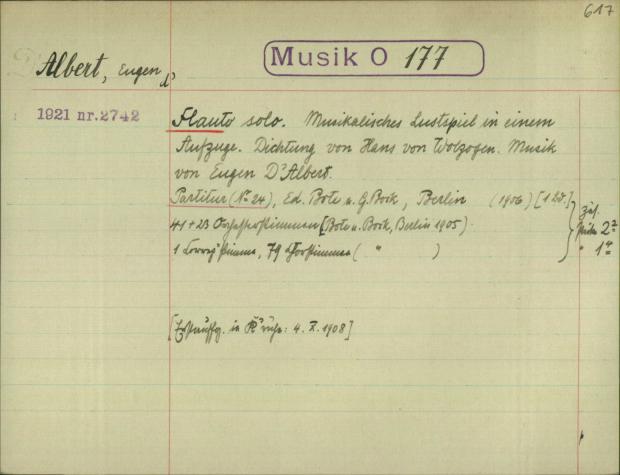 617
Albert, Eugen d'
Musik O 177
1921 nr.2742
Flauto solo. Musikalisches Lustspiel in einem
Aufzuge. Dichtung von Hans von Wolzogen. Musik
von Eugen D'Albert.
Partitur (No 24), Ed. Bote u. G. Bock, Berlin (1906) [1 Bd.]
41 + 23 Orchesterstimmen [Bote u. Bock, Berlin 1905)
1 stimme, 79 Chorstimmen ( " )
2
" 1
[Erstauffg. in K'ruhe: 4. X. 1908]